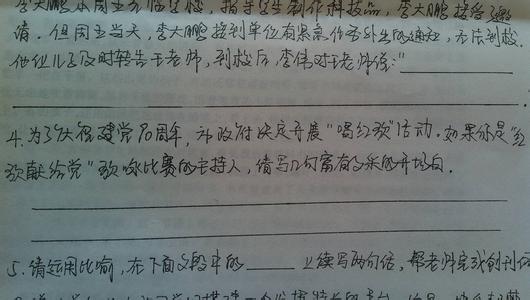 李大鹏本周五来临学校，指导学生制作科技品，李大鹏接受了邀
请。但周五当天，李大鹏接到单位有紧急任务外出的通知，无法到校。
他让儿子及时转告王老师，到校后，李伟对王老师说：“
4.为了庆祝建党90周年，市政府决定开展“唱红歌”活动。如果你是“红
歌献给党”歌咏比赛的主持人，请写几句富有文采的开场白。
5.请运用比喻，在下面文段中的____上续写两句话，帮老师完成创刊